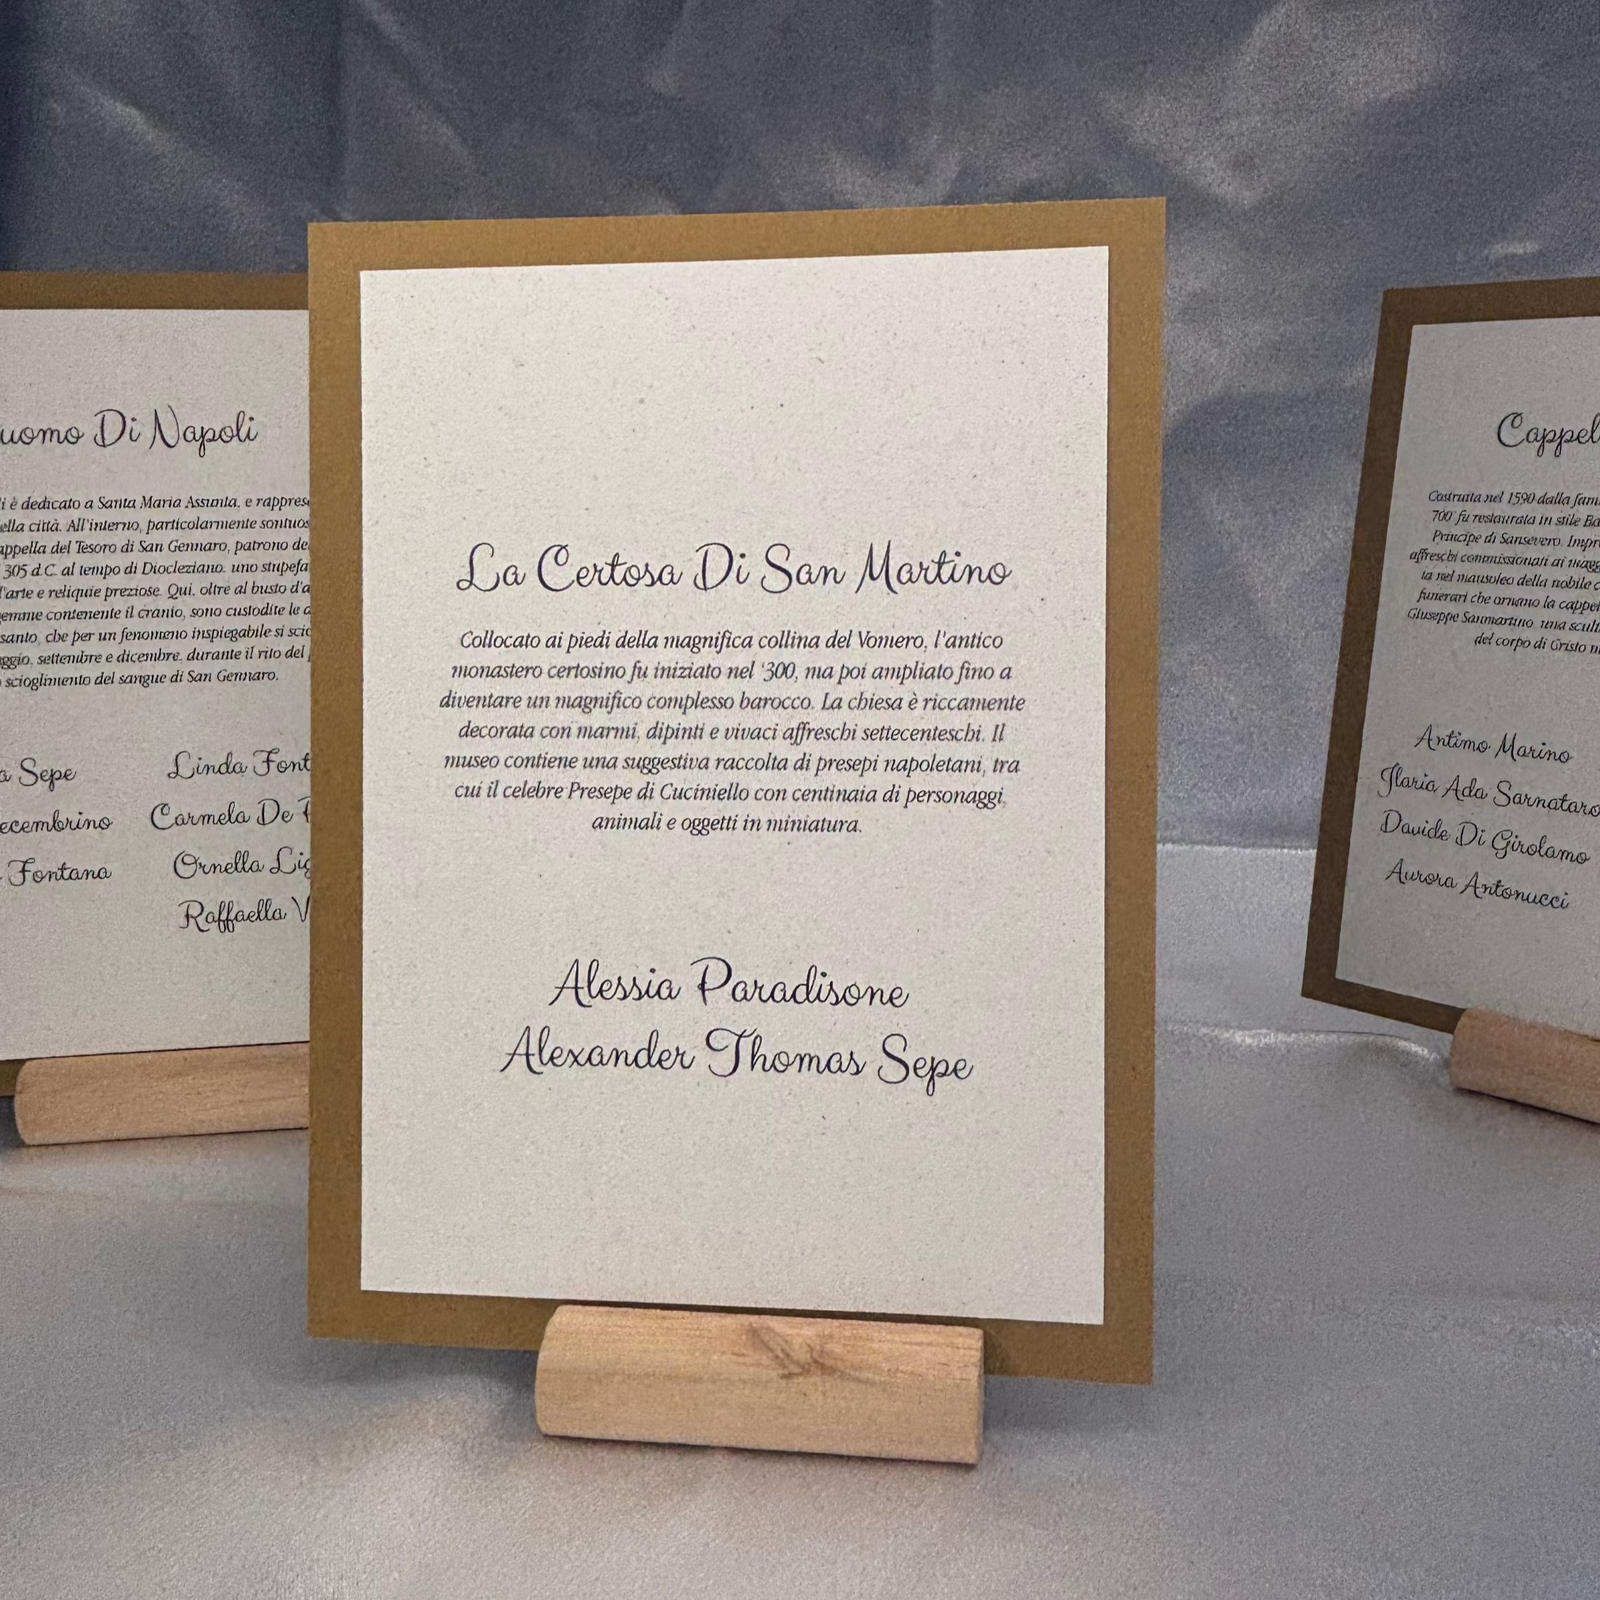 Di Napoli
è dedicato a Santa Maria Assunta, e
della città. All'interno, particolarmente
del Tesoro di San Gennaro, patrono
305 d.C. al tempo di Diocleziano: uno
d'arte e reliquie preziose. Qui, oltre al busto
contenente il cranio, sono custodite le
santo, che per un fenomeno inspiegabile si
settembre e dicembre, durante il rito del
scioglimento del sangue di San Gennaro.
Sepe
Fontana
Linda
Carmela De
Ornella
Raffaella
La Certosa Di San Martino
Collocato ai piedi della magnifica collina del Vomero, l'antico
monastero certosino fu iniziato nel '300, ma poi ampliato fino a
diventare un magnifico complesso barocco. La chiesa è riccamente
decorata con marmi, dipinti e vivaci affreschi settecenteschi. Il
museo contiene una suggestiva raccolta di presepi napoletani, tra
cui il celebre Presepe di Cuciniello con centinaia di personaggi,
animali e oggetti in miniatura.
Alessia Paradisone
Alexander Thomas Sepe
Costruita nel 1590 dalla
700' fu restaurata in stile
Principe di Sansevero.
affreschi commissionati ai
ta nel mausoleo della nobile
funerari che ornano la
Giuseppe Sanmartino, una
del corpo di Cristo
Antimo Marino
Ilaria Ada Sarnataro
Davide Di Girolamo
Aurora Antonucci